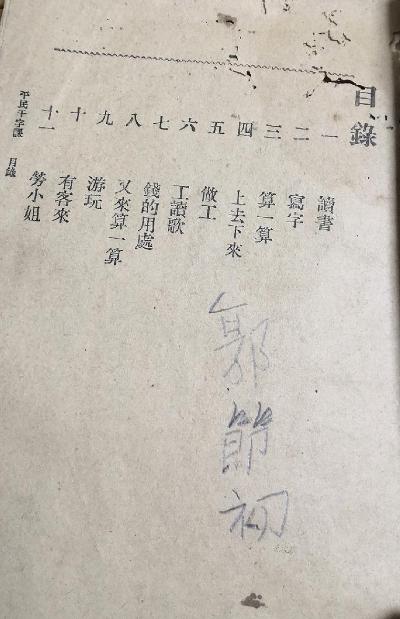 目錄
一 讀書
二 寫字
三 算一算
四 上去下來
五 做工
六 工讀歌
七 錢的用處
八 又來算一算
九 游玩
十 有客來
十一 勞小姐
平民千字課 目錄
郭節初